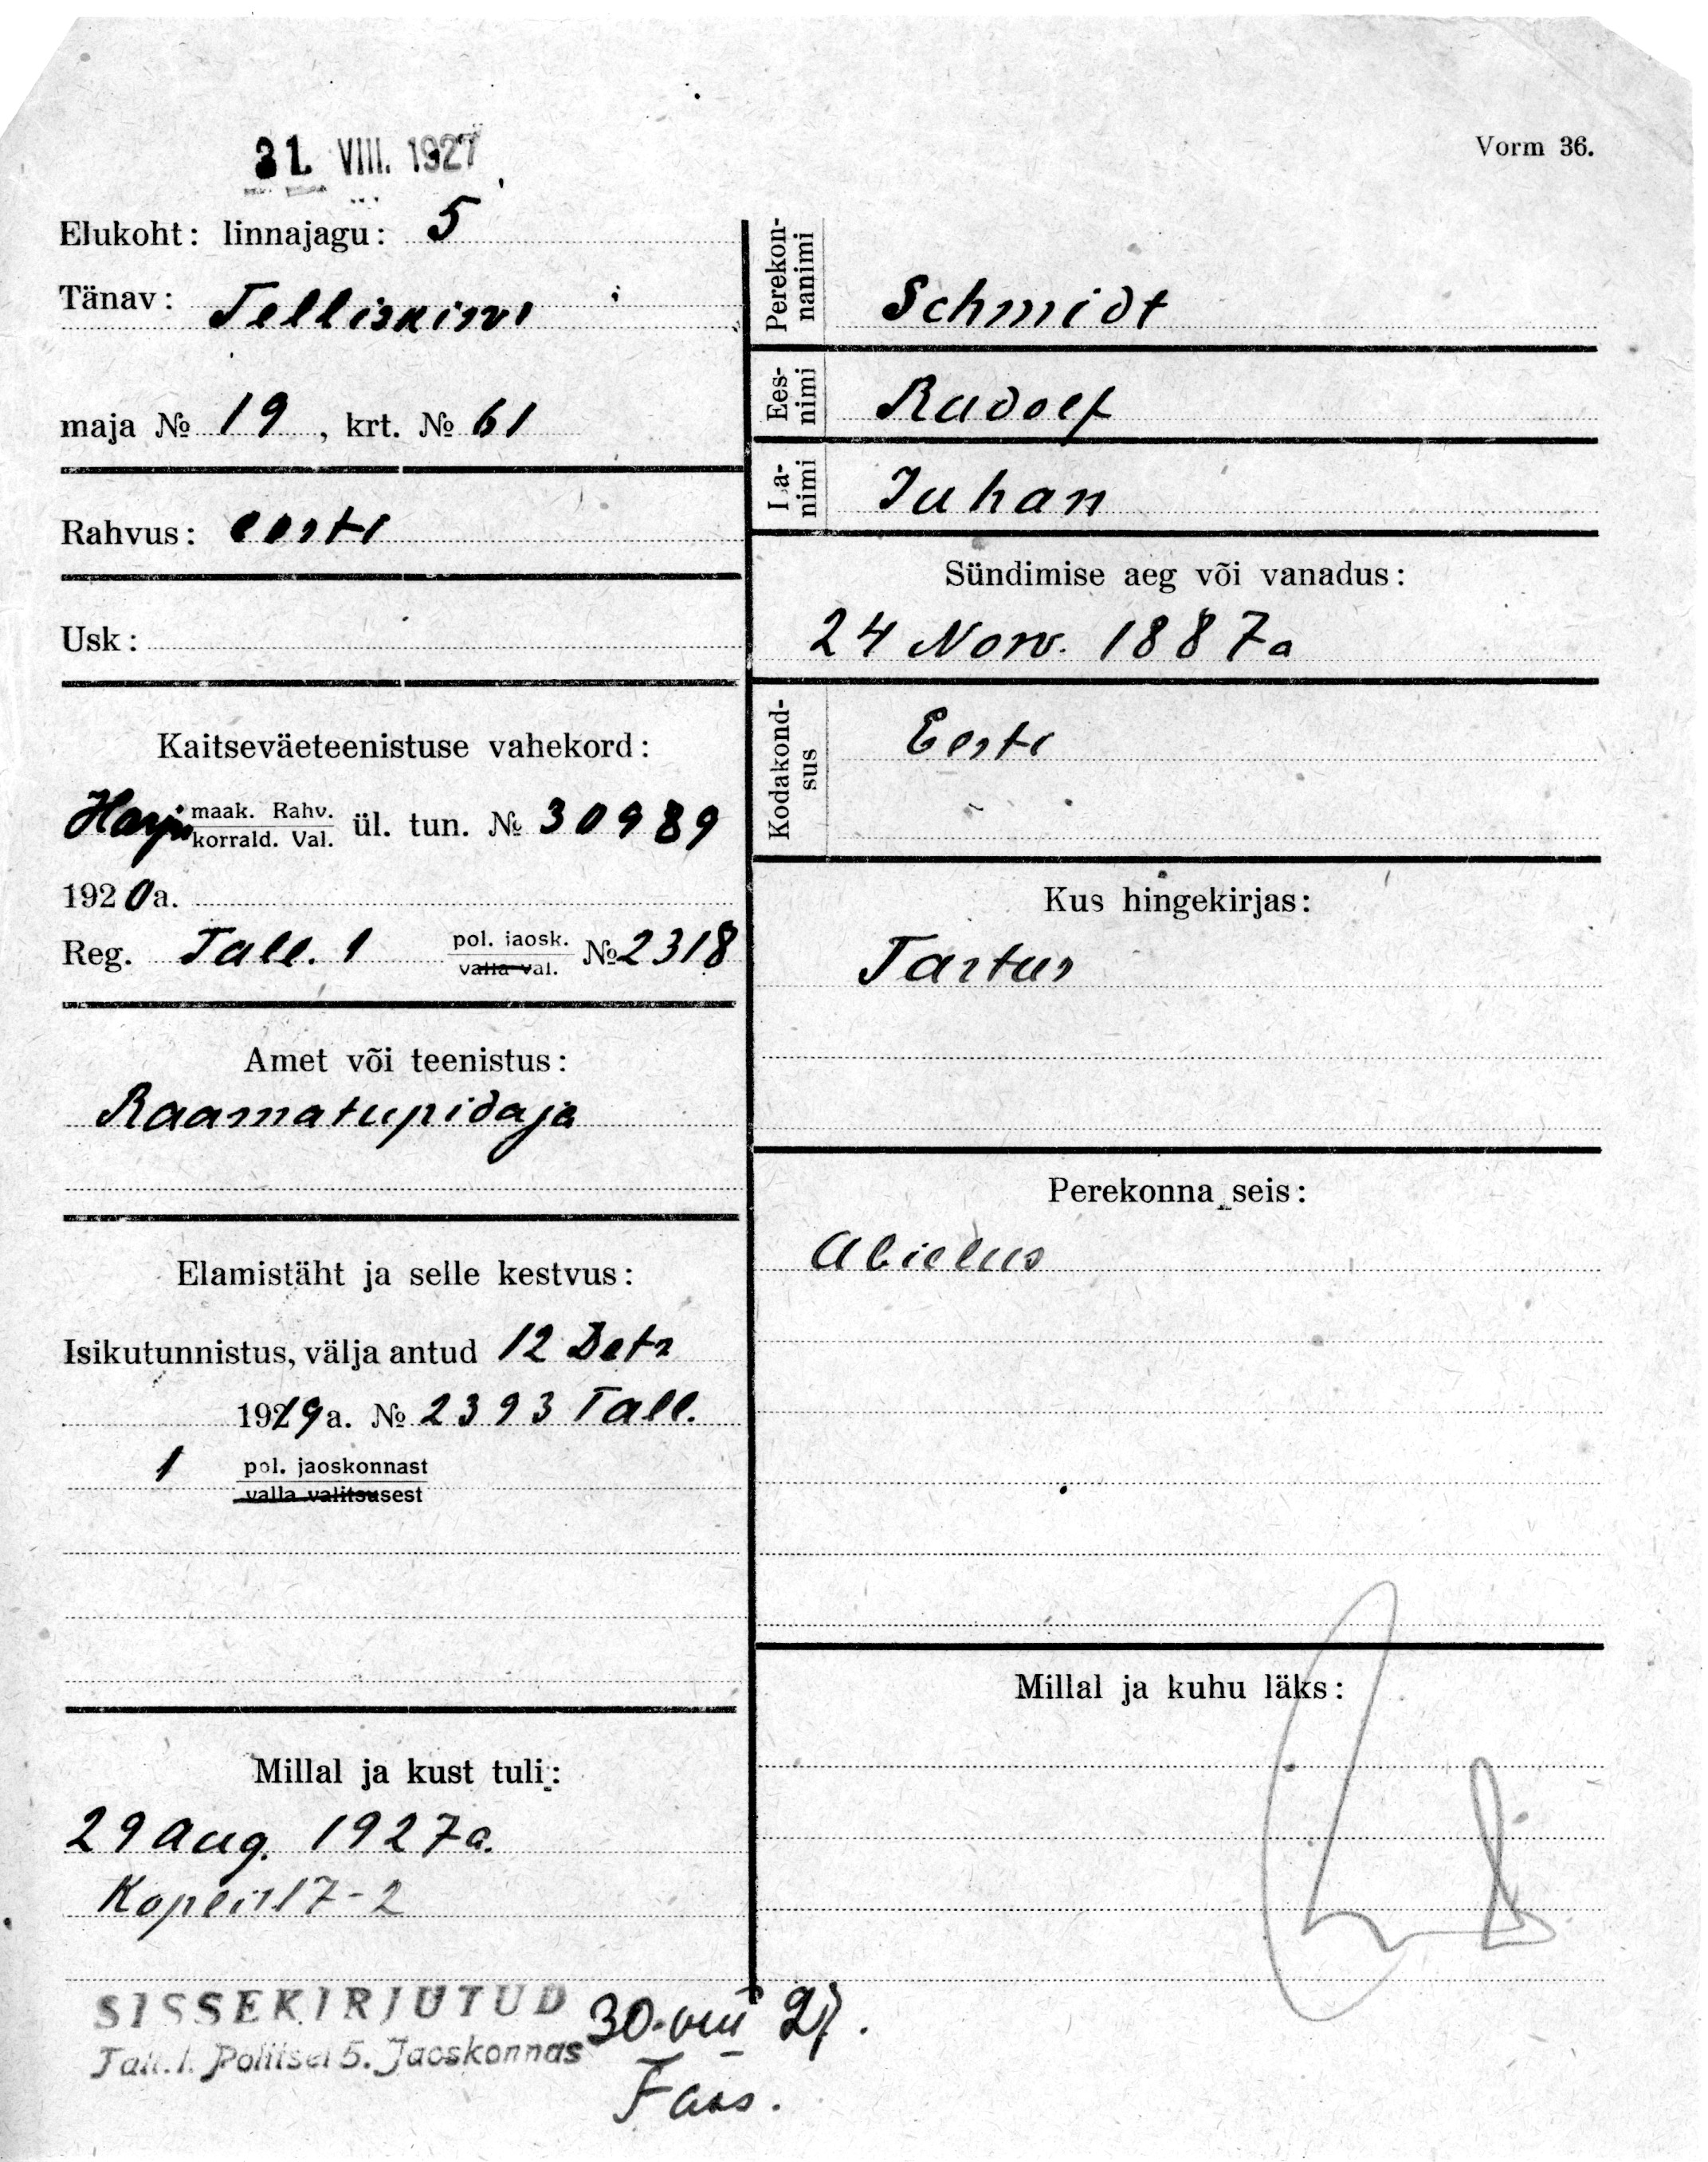 31. VIII. 1927
Vorm 36.
Elukoht: linnajagu: 5
Tänav: Telliskivi
maja № 19, krt. № 61
Rahvus: eesti
Usk:
Kaitseväeteenistuse vahekord:
Harju maak. Rahv.
korrald. Val. ül. tun. № 30989
1920a.
Reg. Tall. 1 pol. jaosk. № 2318
valla val.
Amet või teenistus:
Raamatupidaja
Elamistäht ja selle kestvus:
Isikutunnistus, välja antud 12 Dets
1919a. № 2393 Tall.
1 pol. jaoskonnast
valla valitsusest
Millal ja kust tuli:
29 Aug. 1927a.
Kopli 17-2
SISSEKIRJUTUD
Tall. l. Politsei 5. Jaoskonnas
30.VIII 27.
Perekonnanimi Schmidt
Eesnimi Rudolf
Isanimi Juhan
Sündimise aeg või vanadus:
24 Nov. 1887a
Kodakondsus Eesti
Kus hingekirjas:
Tartus
Perekonna seis:
Abielus
Millal ja kuhu läks: